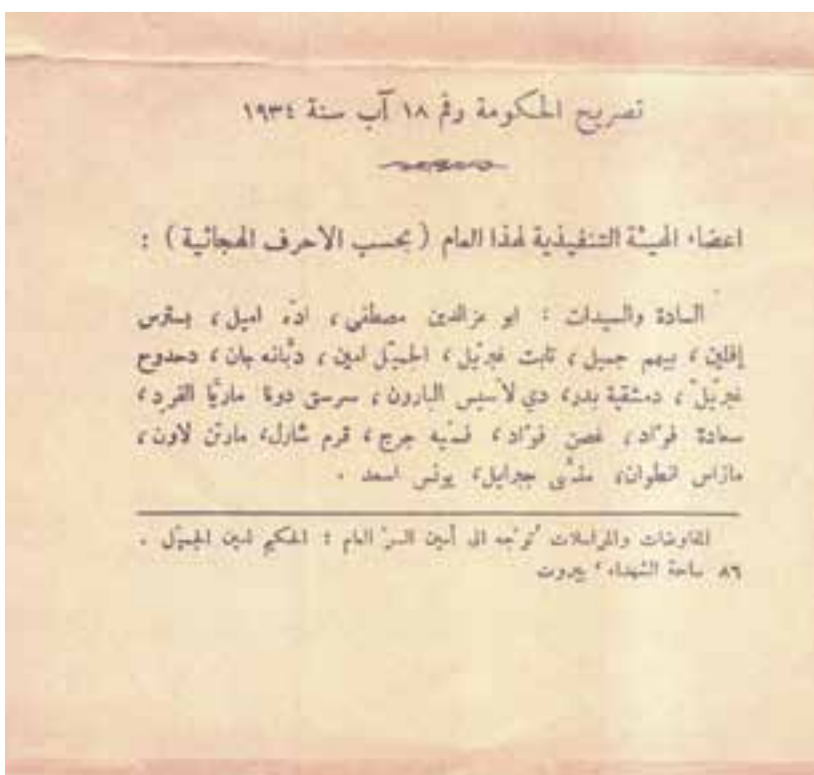 تصريح الحكومة رقم ١٨ آب سنة ١٩٣٤
اعضاء الهيئة التنفيذية لهذا العام ( بحسب الاحرف الهجائية ) :
السادة والسيدات : ابو عزالدين مصطفى، ادّه اميل، بسترس
إفلين، بيهم جميل، ثابت غبرئيل، الجميّل امين، دبّانه جان، دحدوح
غبرئيل، دمشقية بدر، دي لاسيس البارون، سرسق دونا ماريّا الفرد،
سعادة فؤاد، غصن فؤاد، فتيه جرج، قرم شارل، مارتن لاون،
مازاس انطوان، منسّى جبرايل، يونس اسعد .
المفاوضات والمراسلات تُوجّه الى أمين السرّ العام : الحكيم امين الجميّل .
٨٦ ساحة الشهداء، بيروت